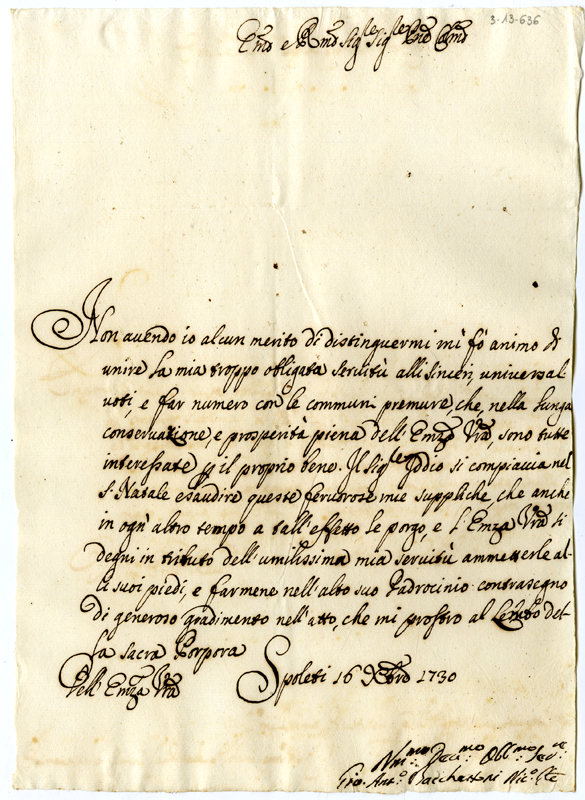 3-13-636
Emo e Rmo Sigre Sigre Pne Colmo
Non auendo io alcun merito di distinguermi mi fò animo di
unire la mia troppo obligata seruitù alli sinceri, uniuersali
uoti, e far numero con le communi premure, che, nella lunga
conseruatione, e prosperità piena dell' Emza Vra, sono tutte
interessate p il proprio bene. Il Sigre Iddio si compiaccia nel
S. Natale esaudire queste feruorose mie suppliche, che anche
in ogn' altro tempo a tall' effetto le porgo, e l' Emza Vra si
degni in tributo dell' umilissima mia seruitù ammetterle al-
li suoi piedi, e farmene nell' alto suo Padrocinio contrasegno
di generoso gradimento nell' atto, che mi prostro al Lembo del-
la sacra Porpora
Dell' Emza Vra Spoleti 16 Xbre 1730
Vmmo Deumo Oblmo Seru.re
Gio: Anto